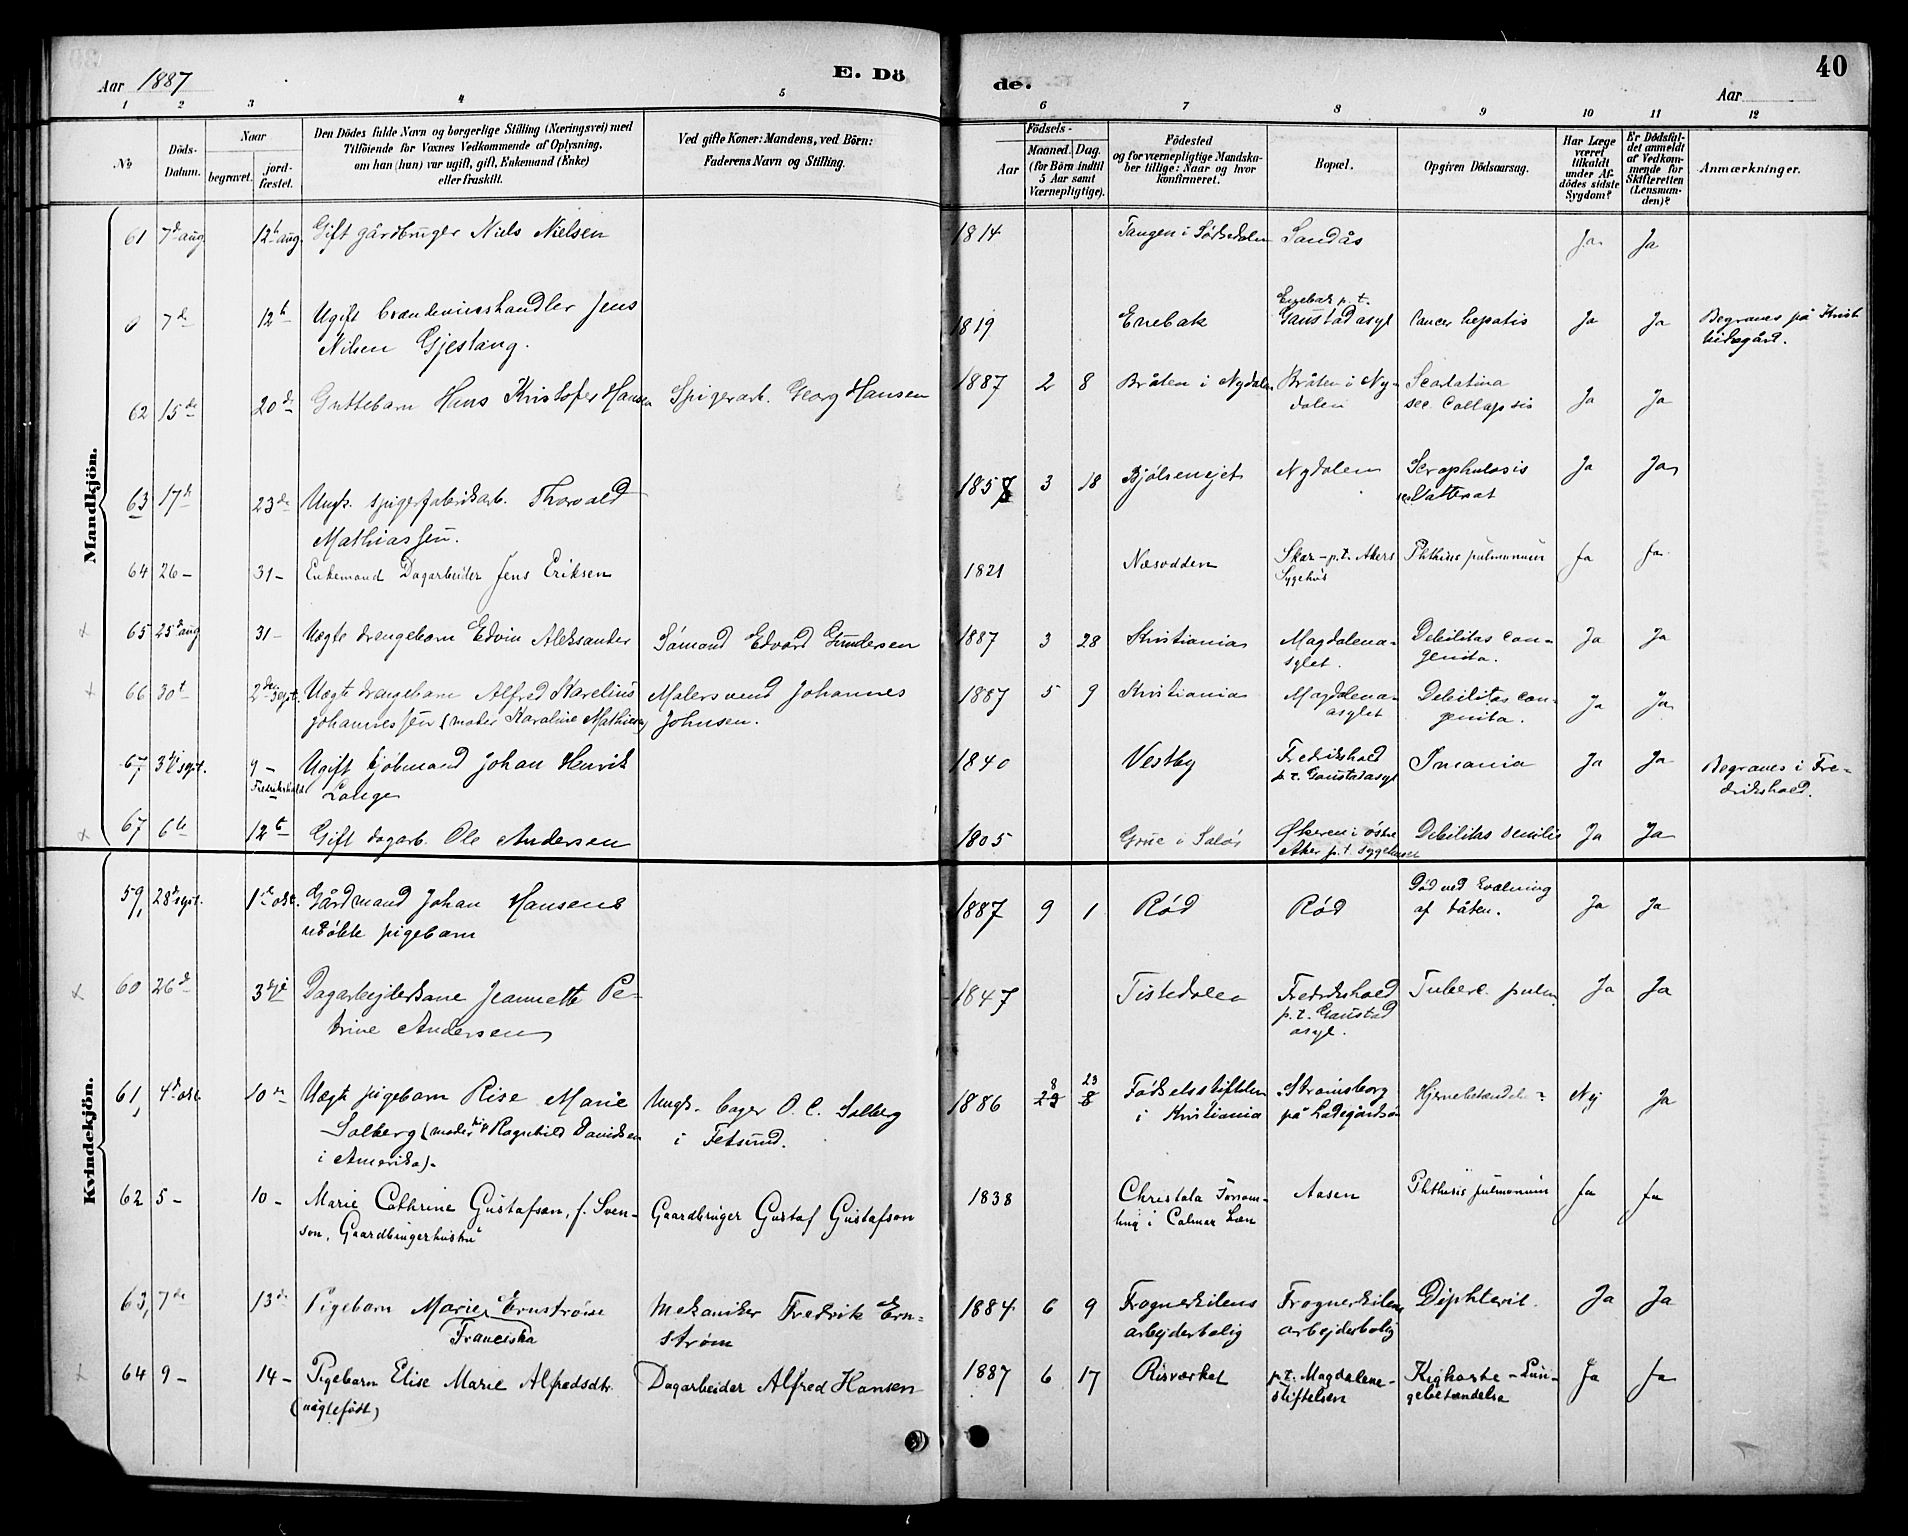 Aar 1887
E. Dö
de.
Aar
40
1 2 3 4 5 6 7 8 9 10 11 12
No
Döds-
Datum.
Naar
begravet.
jord-
fæstet.
Den Dödes fulde Navn og borgerlige Stilling (Næringsvei) med
Tilföiende for Voxnes Vedkommende af Oplysning,
om han (hun) var ugift, gift, Enkemand (Enke)
eller fraskilt.
Ved gifte Koner: Mandens, ved Börn:
Faderens Navn og Stilling.
Födsels-
Aar
Maaned. Dag.
(for Börn indtil
5 Aar samt
Værnepligtige).
Födested
og for værnepligtige Mandska-
ber tillige: Naar og hvor
konfirmeret.
Bopæl.
Opgiven Dödsaarsag.
Har Læge
været
tilkaldt
under Af-
dödes sidste
Sygdom?
Er Dödsfal-
det anmeldt
af Vedkom-
mende for
Skifteretten
(Lensman-
den)?
Anmærkninger.
Mandkjön.
61 7de aug 12te aug. Gift gårdbruger Niels Nielsen 1814 Tangen i Sørkedalen Sandås Ja Ja
0 7de 12te Ugift brændevinshandler Jens
Nilsen Gjestang.
1819 Enebak
Enebak p. t.
Gaustad asyl
Cancer hepatis Ja Ja
Begraves på Krist
kirkegård.
62 15de 20de Guttebarn Hans Kristofer Hansen Spigerarb. Georg Hansen 1887 2 8 Bråten i Nydalen
Bråten i Ny-
dalen
Scarlatina
sec. Collapsis
Ja Ja
63 17de 23de Ungk. spigerfabrikarb. Thorvald
Mathiassen.
1857 3 18 Bjølsenejet Nydalen Scrophulosis
Ja Ja
64 26 - 31 - Enkemand Dagarbeider Jens Eriksen 1821 Næsodden
Skar - p. t. Akers
Sygehus
Phthisis pulmonum Ja Ja
x 65 25de aug 31 - Uægte drengebarn Edvin Aleksander Sømand Edvard Gundersen 1887 3 28 Kristiania
Magdalena-
sylet.
Debilitas con-
genita.
Ja Ja
x 66 30t 2den sept. Uægte drengebarn Alfred Karelius
Johannessen (moder Karoline Mathisen)
Malersvend Johannes
Johnsen.
1887 5 9 Kristiania
Magdalena-
asylet
Debilitas con-
genita.
Ja Ja
67 3dje sept. 9 -
Fredrikshald
Ugift kjøbmand Johan Henrik
Lange
1840 Vestby
Fredrikshald
p. t. Gaustadasyl
Insania Ja Ja
Begraves i Fre-
drikshald.
x 67 6te 12te Gift dagarb. Ole Andersen 1805 Grue i Solør
Økeren i østre
Aker p. t. sygehuset
Debilitas senilis Ja Ja
Kvindekjön.
59, 28de sept. 1ste okt. Gårdmand Johan Hansens
udøbte pigebarn
1887 9 1 Rød Rød
Død ved kvælning
af tåten.
Ja Ja
x 60 26de 3dje Dagarbejderkone Jeannette Pe-
trine Andersen
1847 Tistedalen
Fredrikshald
p. t. Gaustad
asyl.
Tuberc. pulm. Ja Ja
61, 4de okt. 10de Uægte pigebarn Rise Marie
Solberg (moder Ragnhild Davidsen
i Amerika).
Ungk. bager O. C. Solberg
i Fetsund.
1886 8 23 Fødselsstiftelsen
i Kristiania
Strømsborg
på Ladegårdsøen
Hjernebetændelse Nej Ja
62 5 - 10 - Marie Cathrine Gustafson, f. Sven-
son, Gaardbrugerhustru
Gaardbruger Gustaf Gustafson 1838
Christala Forsam-
ling i Calmar Læn
Aasen Phthisis pulmonum Ja Ja
63, 7de 13de Pigebarn Marie Ernstrøm
Franciska
Mekaniker Fredrik Ern-
strøm
1884 6 9 Frognerkilens
arbejderbolig
Frognerkilens
arbejderbolig
Diphterit. Ja Ja
x 64 9 - 14 - Pigebarn Elise Marie Alfredsdtr.
(uægtefødt)
Dagarbeider Alfred Hansen 1887 6 17 Risværket
p. t. Magdalene-
stiftelsen
Kighoste - Lun-
gebetændelse
Ja Ja